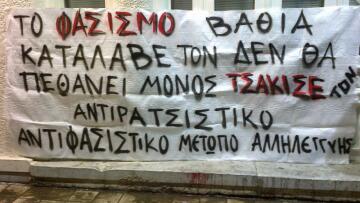 ΤΟ ΦΑΣΙΣΜΟ ΒΑΘΙΑ
ΚΑΤΑΛΑΒΕ ΤΟΝ ΔΕΝ ΘΑ
ΠΕΘΑΝΕΙ ΜΟΝΟΣ ΤΣΑΚΙΣΕ ΤΟΝ
ΑΝΤΙΡΑΤΣΙΣΤΙΚΟ
ΑΝΤΙΦΑΣΙΣΤΙΚΟ ΜΕΤΩΠΟ ΑΛΛΗΛΕΓΓΥΗΣ